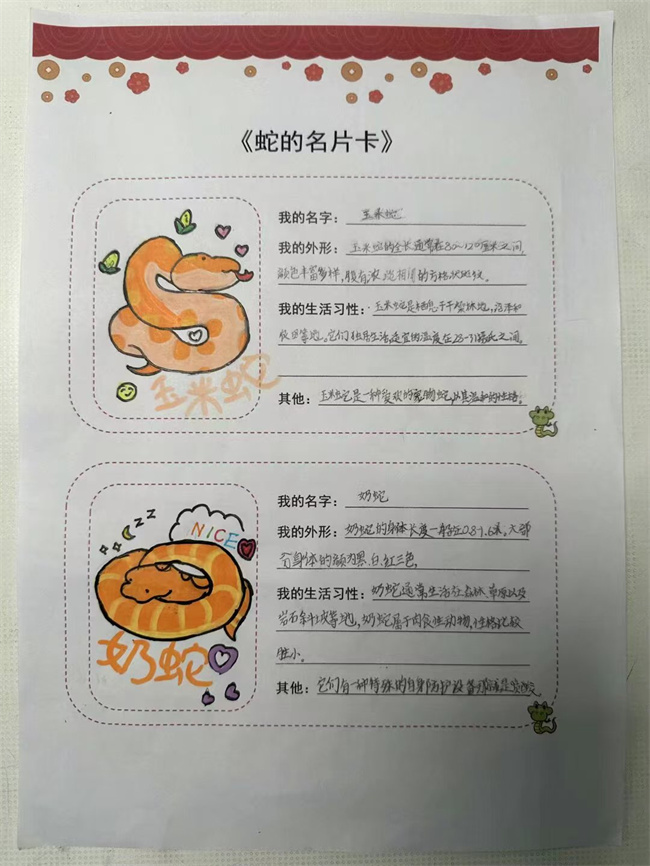 《蛇的名片卡》
玉米蛇
我的名字：玉米蛇
我的外形：玉米蛇的全长通常在80~120厘米之间，
颜色丰富多样，腹有
的方格状
我的生活习性：玉米蛇是栖息于干燥林地，沼泽和
等地。它们
生活适宜的温度在28-31摄氏之间。
其他：玉米蛇是一种受欢的宠物蛇，以其温和的性格。
NICE
zzz
奶蛇
我的名字：奶蛇
我的外形：奶蛇的身体长度一般在0.8-1.6米。大部
分身体的颜色为黑、白、红三色。
我的生活习性：奶蛇通常生活在森林、草原以及
岩石斜坡等地，奶蛇属于肉食性动物，性格比较
胆小。
其他：它们有一种特殊的自身防护设备